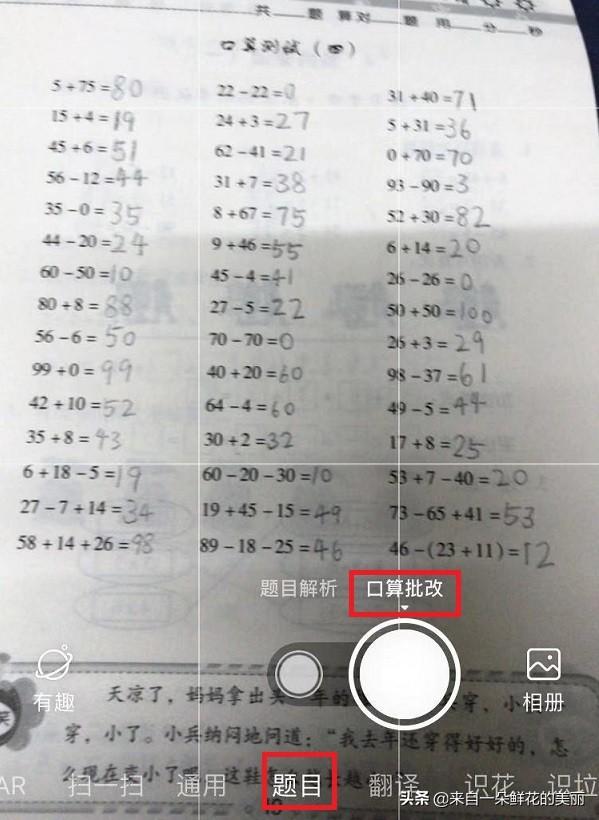 共 题 算对 题 用 分 秒
口算测试（四）
5+75=80 22-22=0 31+40=71
15+4=19 24+3=27 5+31=36
45+6=51 62-41=21 0+70=70
56-12=44 31+7=38 93-90=3
35-0=35 8+67=75 52+30=82
44-20=24 9+46=55 6+14=20
60-50=10 45-4=41 26-26=0
80+8=88 27-5=22 50+50=100
56-6=50 70-70=0 26+3=29
99+0=99 40+20=60 98-37=61
42+10=52 64-4=60 49-5=44
35+8=43 30+2=32 17+8=25
6+18-5=19 60-20-30=10 53+7-40=20
27-7+14=34 19+45-15=49 73-65+41=53
58+14+26=98 89-18-25=46 46-(23+11)=12
题目解析 口算批改
有趣 相册
天凉了，妈妈拿出 年的 穿，小
穿，小了。小兵纳闷地问道：“我去年还穿得好好的，怎
么现在变小了呢 这鞋
AR 扫一扫 通用 题目 翻译 识花 识垃
头条 @来自一朵鲜花的美丽